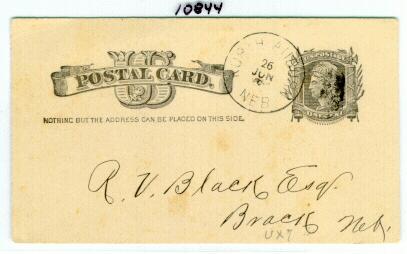 10844
US
POSTAL CARD.
NOTHING BUT THE ADDRESS CAN BE PLACED ON THIS SIDE.
26
JUN
NEB
R. V. Black Esqr.
Brock Neb.
UX7